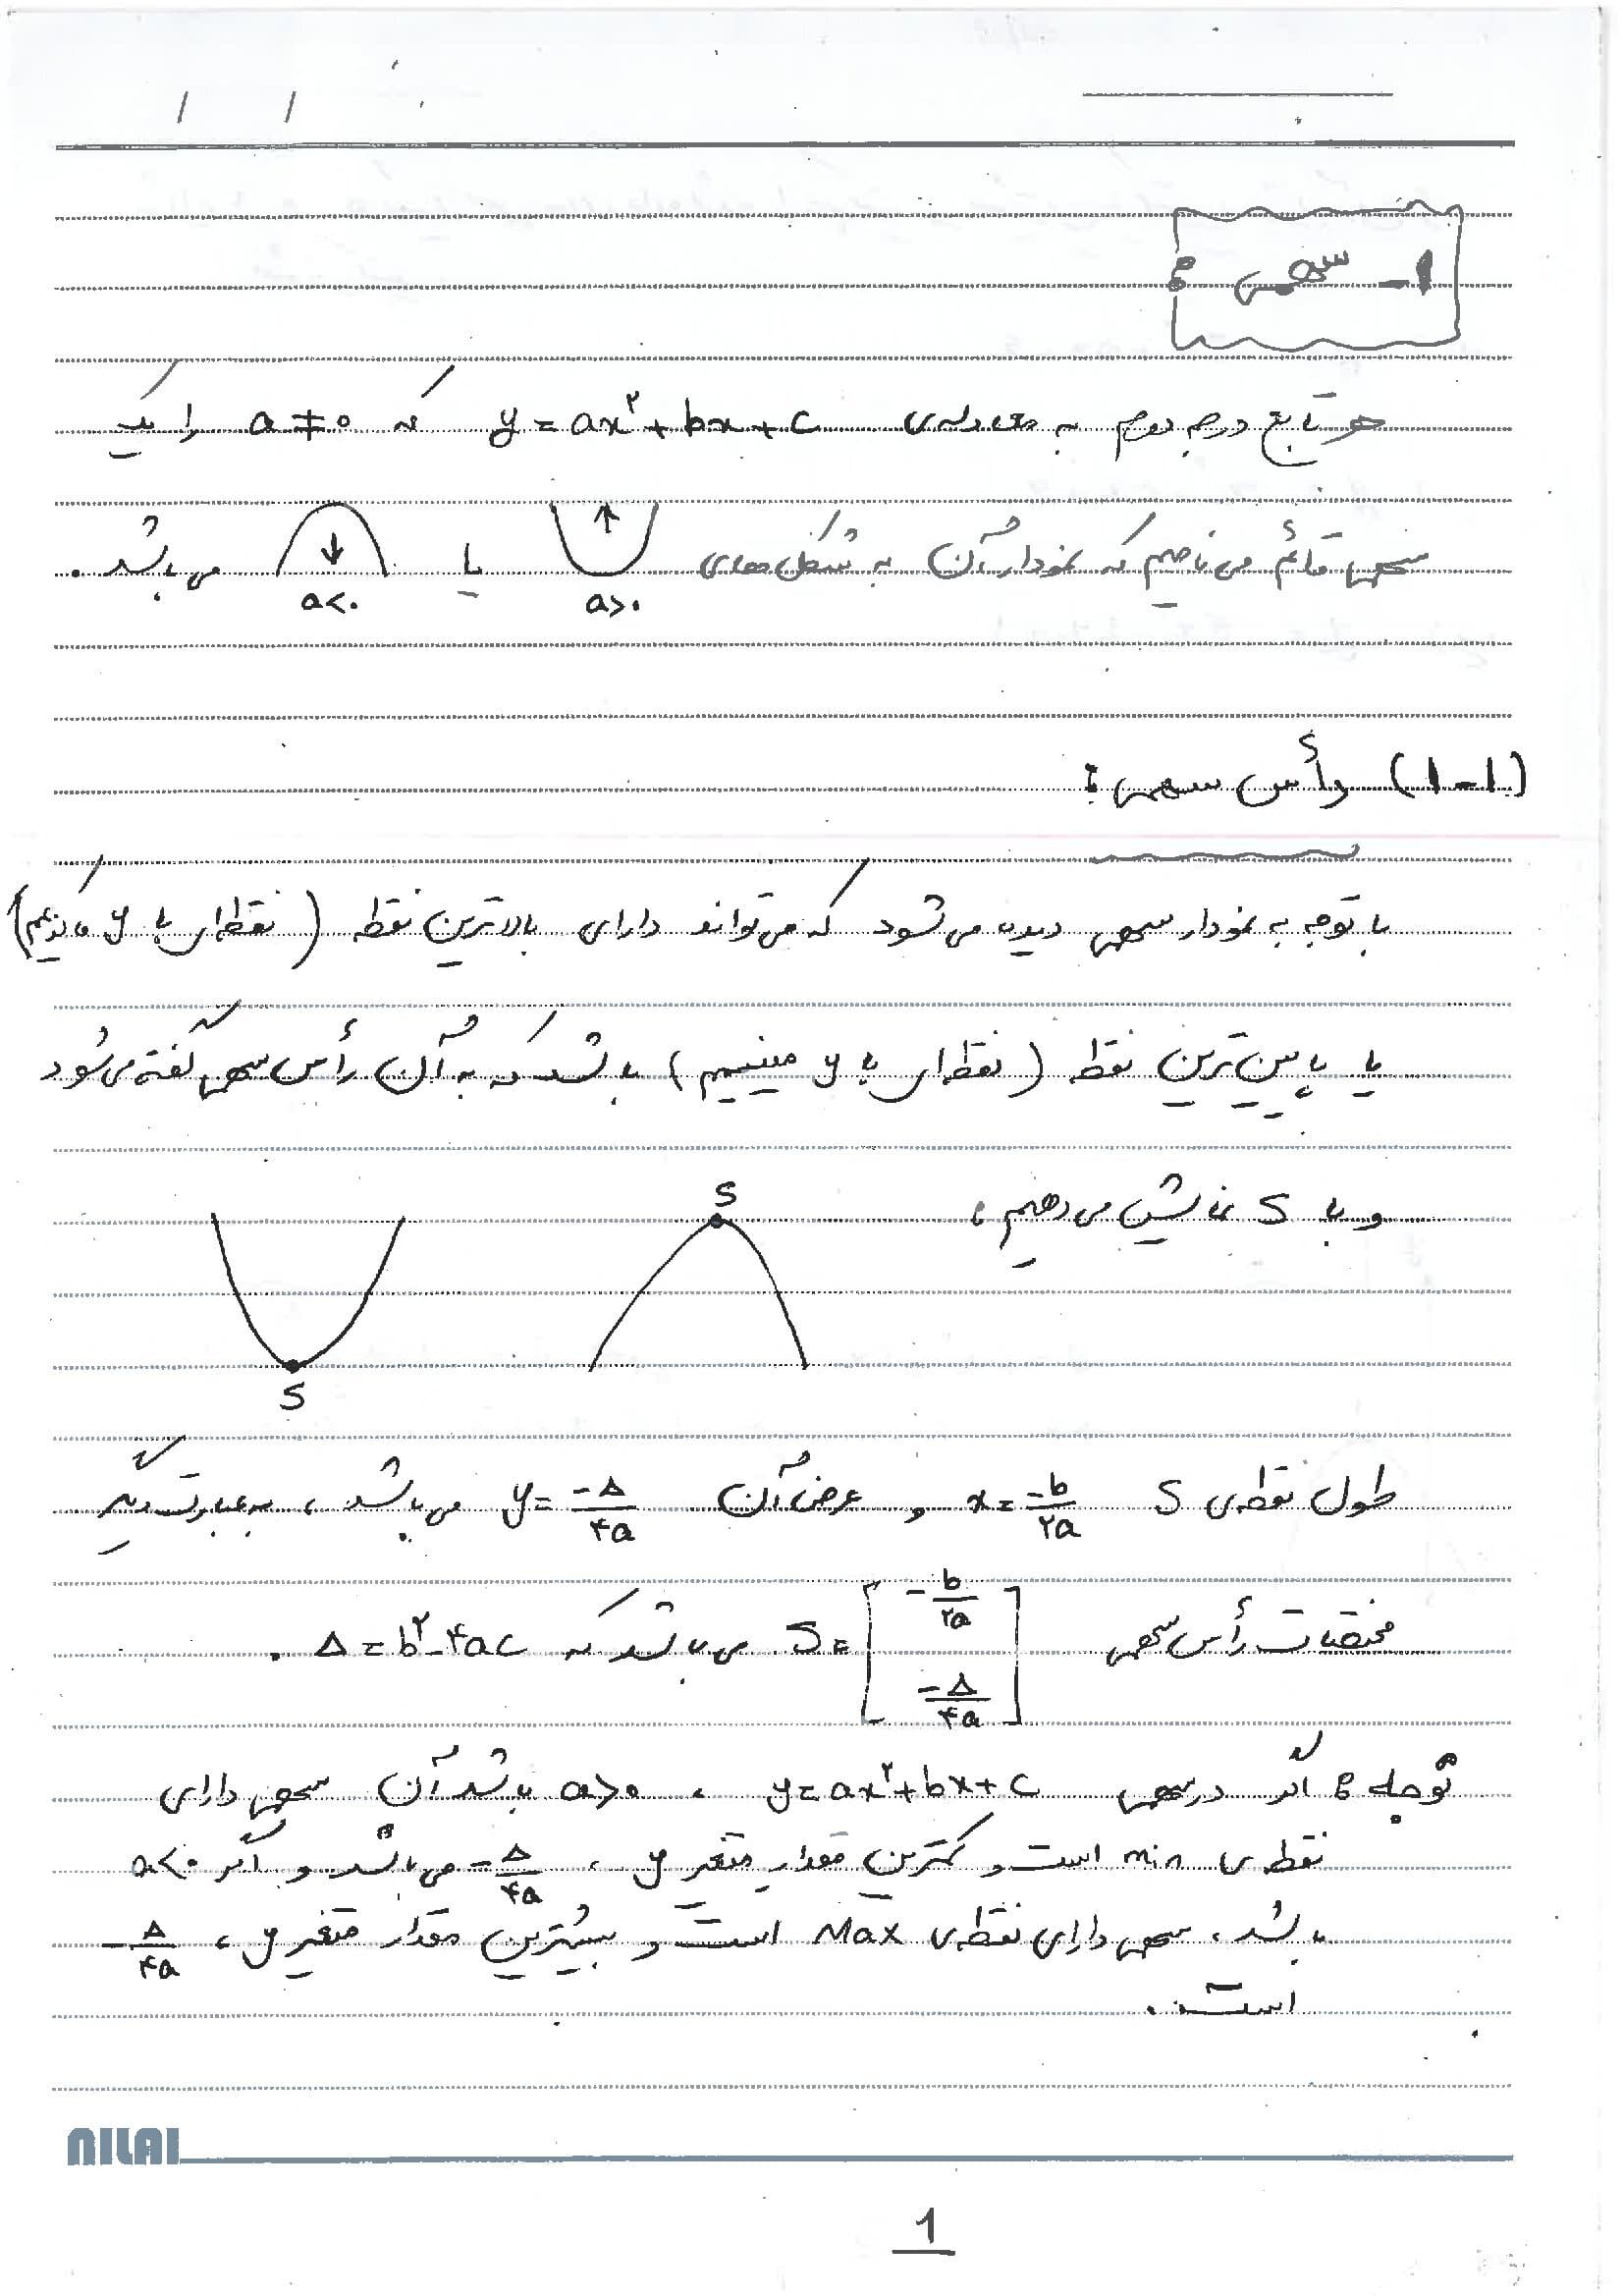 ۱- سهمی :
هر تابع درجه دوم به معادله‌ی y = ax² + bx + c که a ≠ ۰ را یک
سهمی قائم می نامیم که نمودار آن به شکل های a>۰ یا a<۰ می باشد .
(۱-۱) رأس سهمی :
با توجه به نمودار سهمی دیده می شود که می تواند دارای بالاترین نقطه ( نقطه ای با y ماکزیمم)
یا پایین ترین نقطه ( نقطه ای با y مینیمم ) باشد که به آن رأس سهمی گفته می شود
و با S نمایش می دهیم :
S
S
طول نقطه ی S x = -b/۲a و عرض آن y = -Δ/۴a می باشد ، به عبارت دیگر
مختصات رأس سهمی S = [-b/۲a -Δ/۴a] می باشد که Δ = b² - ۴ac .
توجه : اگر در سهمی y = ax² + bx + c ، a>۰ باشد آن سهمی دارای
نقطه ی min است و کمترین مقدار متغیر y ، -Δ/۴a می باشد و اگر a<۰
باشد ، سهمی دارای نقطه ی Max است و بیشترین مقدار متغیر y ، -Δ/۴a
است .
NILAI
1